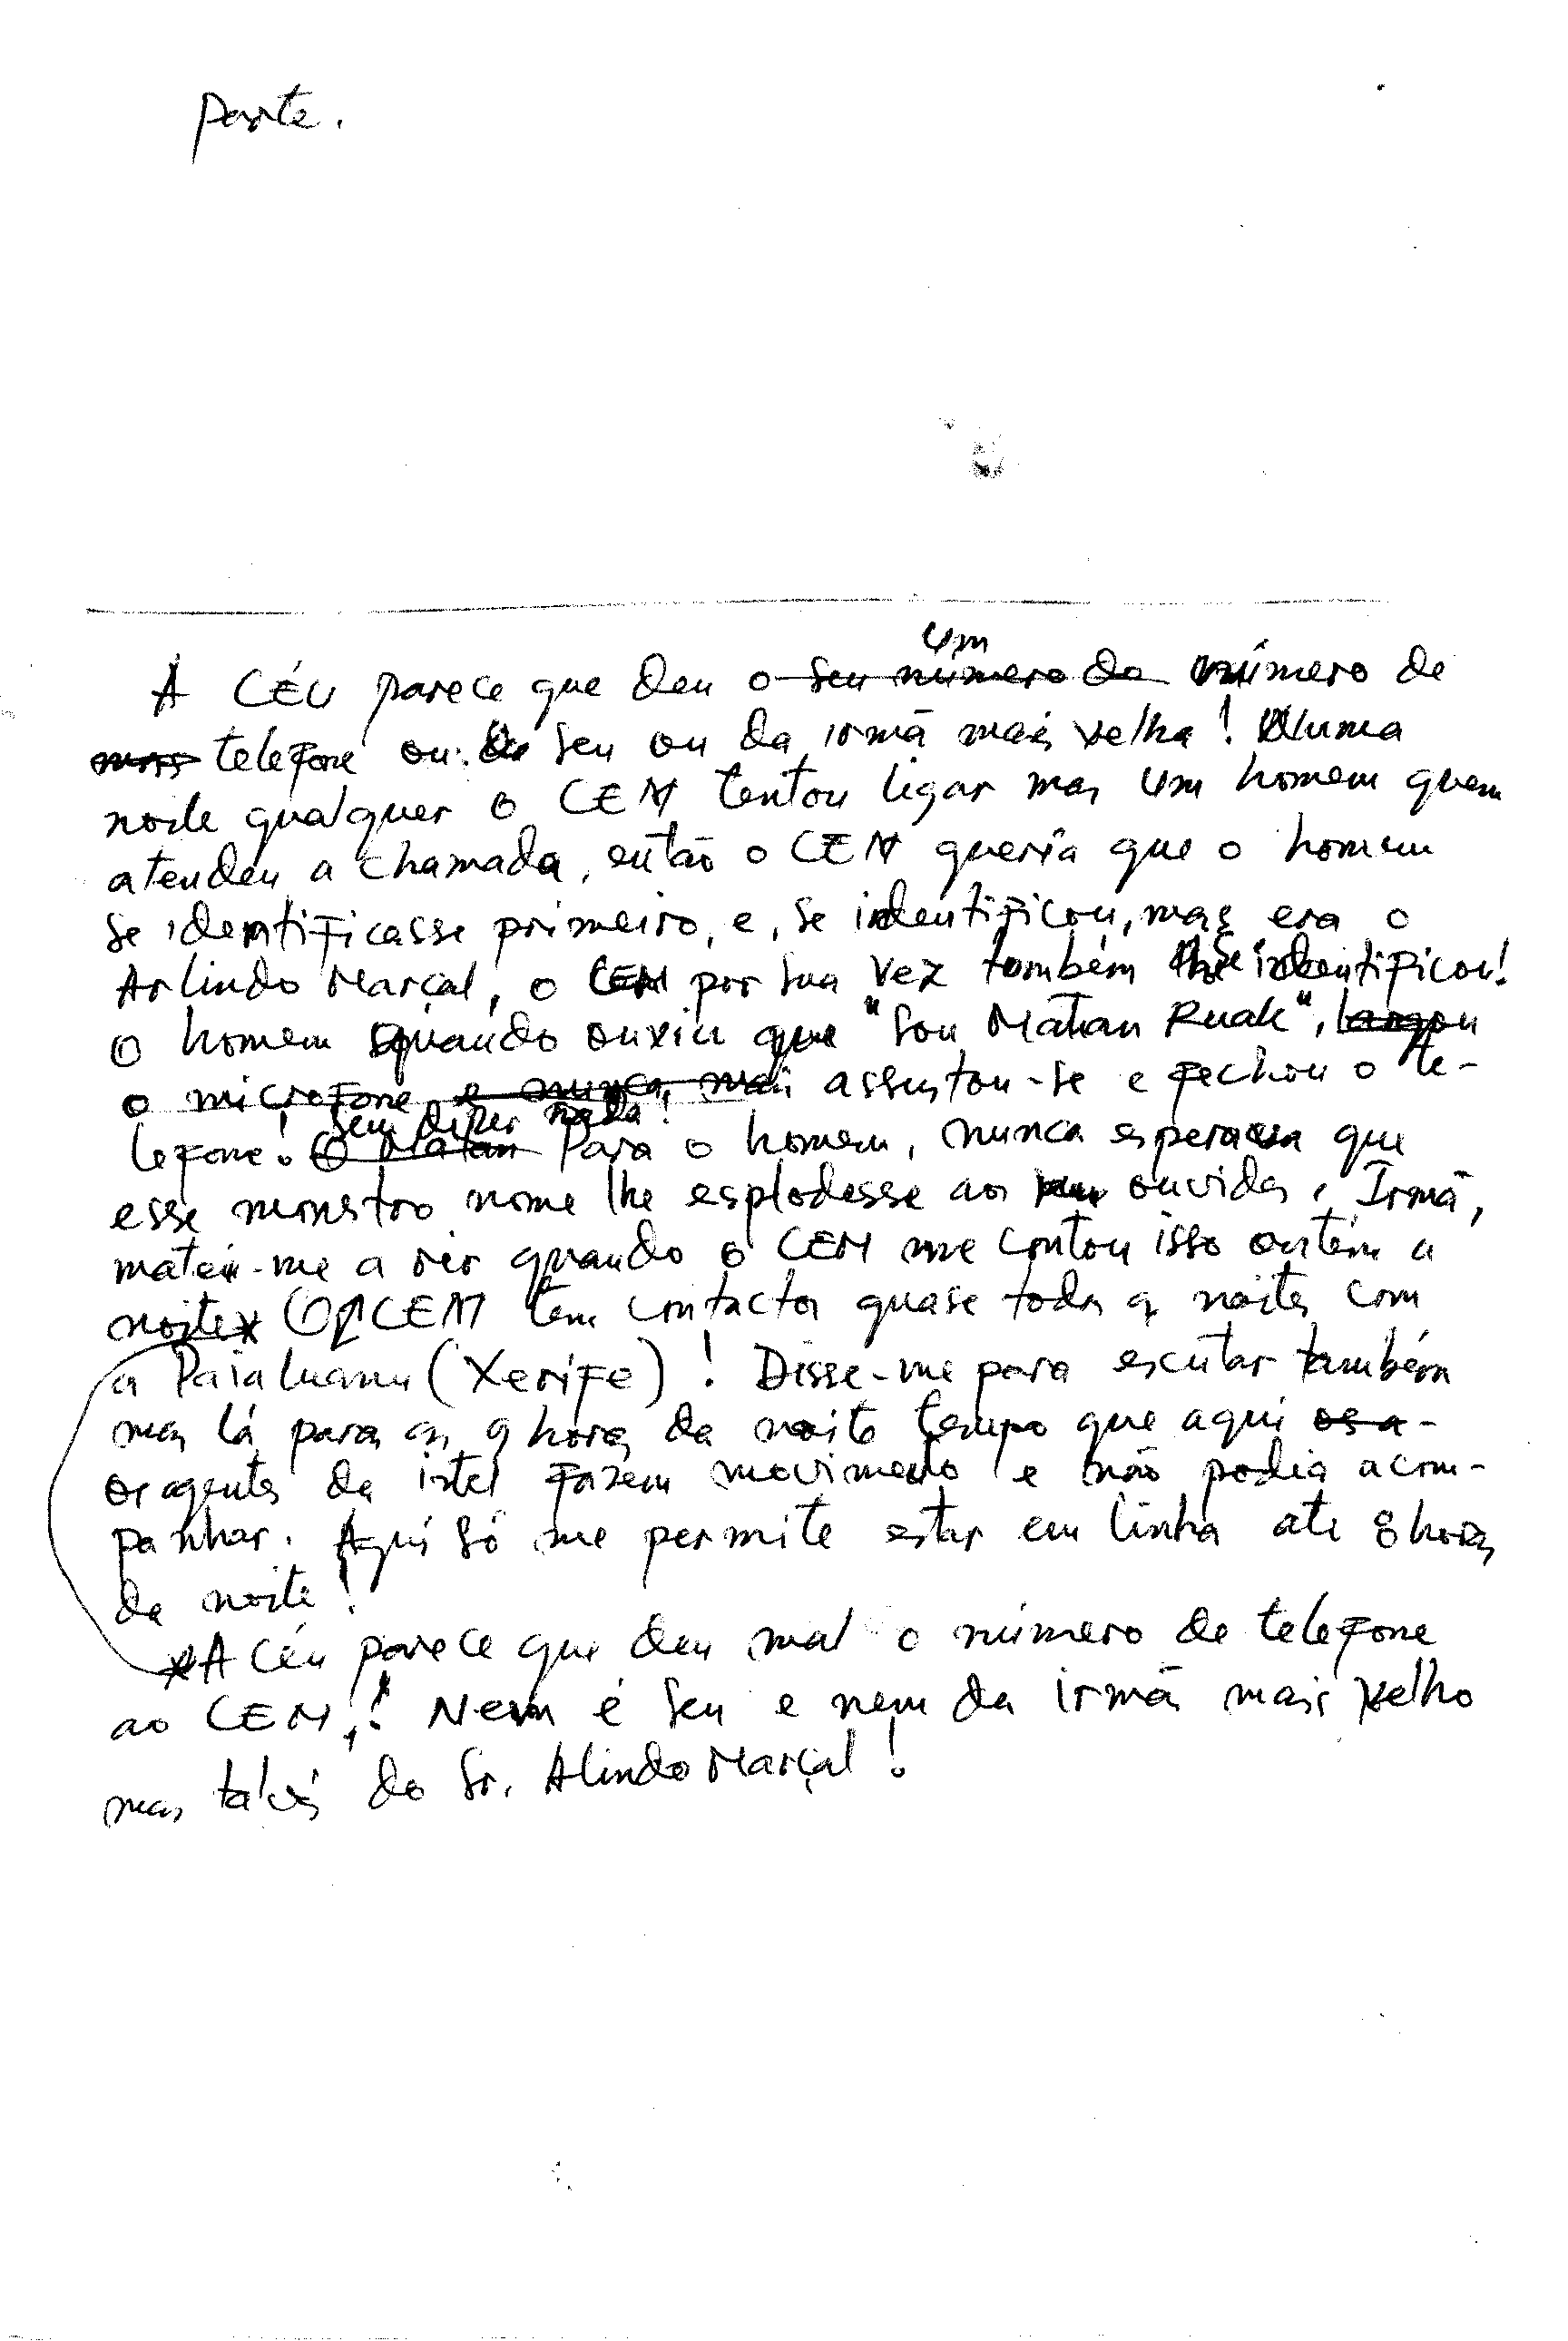 Parte.
A CÉU parece que deu o seu número do um número de
mais telefone ou: do seu ou da irmã mais velha! Numa
noite qualquer o CEM tentou ligar mas um homem quem
atendeu a chamada, então o CEM queria que o homem
se identificasse primeiro, e, se identificou, mas era o
Arlindo Marçal, o CEM por sua vez também se identificou!
O homem quando ouviu que "Sou Matan Ruak", largou
o microfone e nunca mais assustou-se e fechou o te-
sem dizer nada!
lefone! O Matan Para o homem, nunca esperava que
esse monstro nome lhe esplodesse aos ouvidos, Irmã,
matei-me a rir quando o CEM me contou isso ontem a
noite* O CEM tem contactos quase todas as noites com
a Paialuanu (Xerife)! Disse-me para escutar também
mas lá para as 9 horas da noite tempo que aqui os a-
os agentes da intel fazem movimento e não podia acom-
panhar. Aqui só me permite estar em linha ate 8 horas
da noite!
*A Céu parece que deu mal o número de telefone
ao CEM,! Nem é seu e nem da irmã mais velho
mas talvés do Sr. Alindo Marçal!